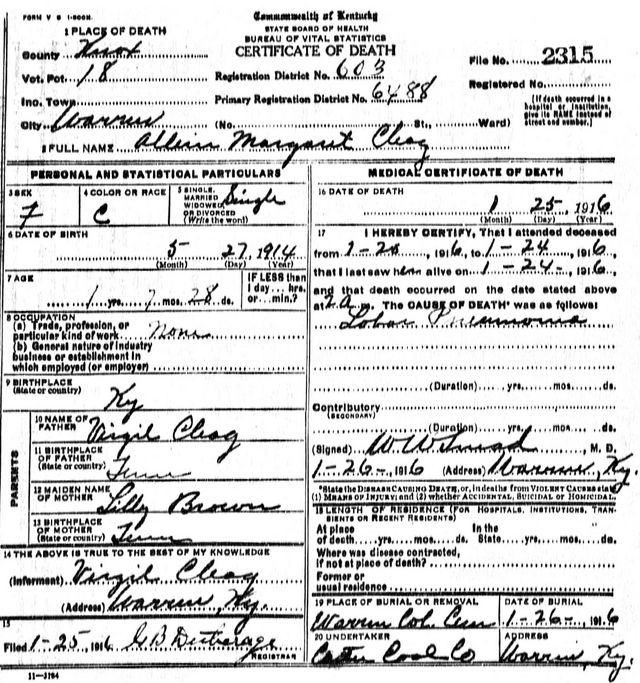 FORM V S 1-500M.
Commonwealth of Kentucky
STATE BOARD OF HEALTH
BUREAU OF VITAL STATISTICS
CERTIFICATE OF DEATH
1 PLACE OF DEATH
County Knox
Vot. Pct. 18
Inc. Town
City Warren
Registration District No. 603
Primary Registration District No. 6488
(No. St., Ward)
File No. 2315
Registered No.
[If death occurred in a hospital or institution, give its NAME instead of street and number.]
2 FULL NAME Margaret Cleag
PERSONAL AND STATISTICAL PARTICULARS
3 SEX
F
4 COLOR OR RACE
C
5 SINGLE, MARRIED WIDOWED OR DIVORCED (Write the word) Single
6 DATE OF BIRTH
5 27, 1914
(Month) (Day) (Year)
7 AGE
1 yrs. 7 mos. 28 ds.
IF LESS than 1 day.... hrs. or.... min.?
8 OCCUPATION
(a) Trade, profession, or particular kind of work None
(b) General nature of industry business or establishment in which employed (or employer)
9 BIRTHPLACE
(State or country)
Ky
PARENTS
10 NAME OF FATHER
Virgil Cleag
11 BIRTHPLACE OF FATHER
(State or country) Tenn
12 MAIDEN NAME OF MOTHER Lilly Brown
13 BIRTHPLACE OF MOTHER
(State or country) Tenn
14 THE ABOVE IS TRUE TO THE BEST OF MY KNOWLEDGE
(Informant) Virgil Cleag
(Address) Warren, Ky.
15
Filed 1-25, 1916 G B
REGISTRAR
11-3184
MEDICAL CERTIFICATE OF DEATH
16 DATE OF DEATH
1 25, 1916
(Month) (Day) (Year)
17 I HEREBY CERTIFY, That I attended deceased
from 1-20, 1916, to 1-24, 1916
that I last saw her alive on 1-24-, 1916,
and that death occurred on the date stated above
at 2 A m. The CAUSE OF DEATH* was as follows:
Lobar Pneumonia
(Duration) yrs. mos. ds.
Contributory
(SECONDARY)
(Duration) yrs. mos. ds.
(Signed) W W, M. D.
1-26-, 1916 (Address) Warren, Ky.
*State the DISEASE CAUSING DEATH, or, in deaths from VIOLENT CAUSES state (1) MEANS OF INJURY; and (2) whether ACCIDENTAL, SUICIDAL or HOMICIDAL.
18 LENGTH OF RESIDENCE (FOR HOSPITALS, INSTITUTIONS, TRANSIENTS OR RECENT RESIDENTS)
At place of death yrs. mos. ds. In the State yrs. mos. ds.
Where was disease contracted,
if not at place of death?
Former or usual residence
19 PLACE OF BURIAL OR REMOVAL
Warren Col. Cem
DATE OF BURIAL
1-26-, 1916
20 UNDERTAKER
Coal Co
ADDRESS
Warren, Ky.